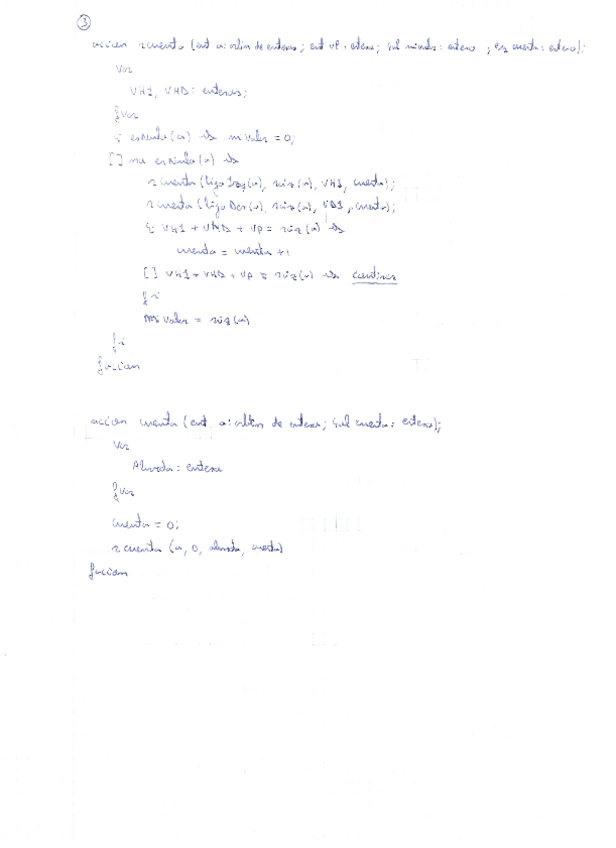 3
accion rcuenta (ent a: arbin de enteros; ent vp: entero; sal mivalor: entero ; es cuenta: entero);
Var
VHI, VHD: enteros;
fvar
si esvacio(a) → mivalor = 0;
[] no esvacio(a) →
rcuenta (hijoIzq(a), raiz(a), VHI, cuenta);
rcuenta (hijoDer(a), raiz(a), VDI, cuenta);
si VHI + VHD + VP = raiz(a) →
cuenta = cuenta + 1
[] VHI + VHD + VP ≠ raiz(a) → continuar
fsi
mivalor = raiz(a)
fsi
faccion
accion cuenta (ent a: arbin de enteros; sal cuenta: entero);
Var
: entero
fvar
cuenta = 0;
rcuenta (a, 0, cuenta)
faccion